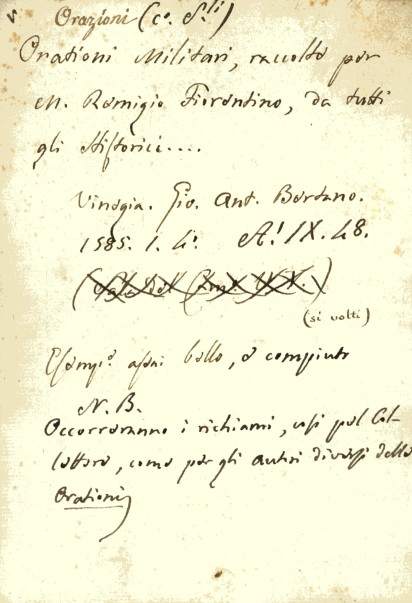 Orazioni (co. S.li)
Orationi Militari, raccolte per
M. Remigio Fiorentino, da tutti
gli Historici....
Vinegia. Gio. Ant. Bertano.
1585. 1. 4º. A.I IX. 48.
(si volti)
Esemp.e assai bello, e compiuto
N. B.
Occorreranno i richiami, così pel Col-
lettore, come per gli autori diversi delle
Orationi